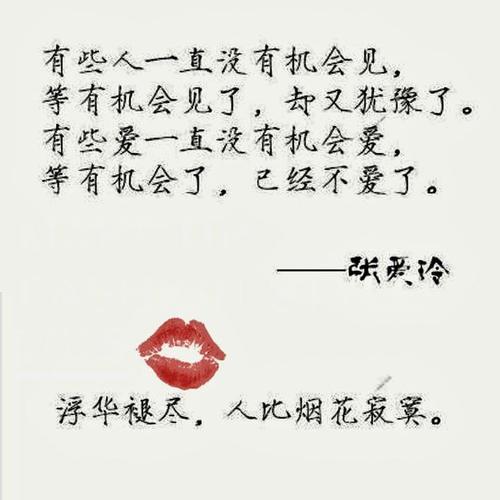 有些人一直没有机会见,
等有机会见了,却又犹豫了。
有些爱一直没有机会爱,
等有机会了,已经不爱了。
——张爱玲
浮华褪尽,人比烟花寂寞。